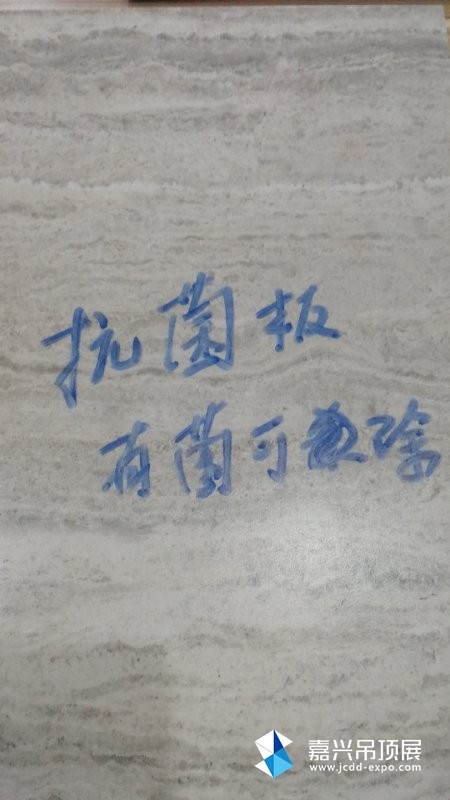 抗菌板
有菌可除
嘉兴吊顶展
www.jcdd-expo.com